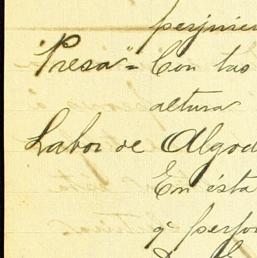 perjuici
"Presa" = Con las
altura
Labor de Algod
En ésta
qe perfor